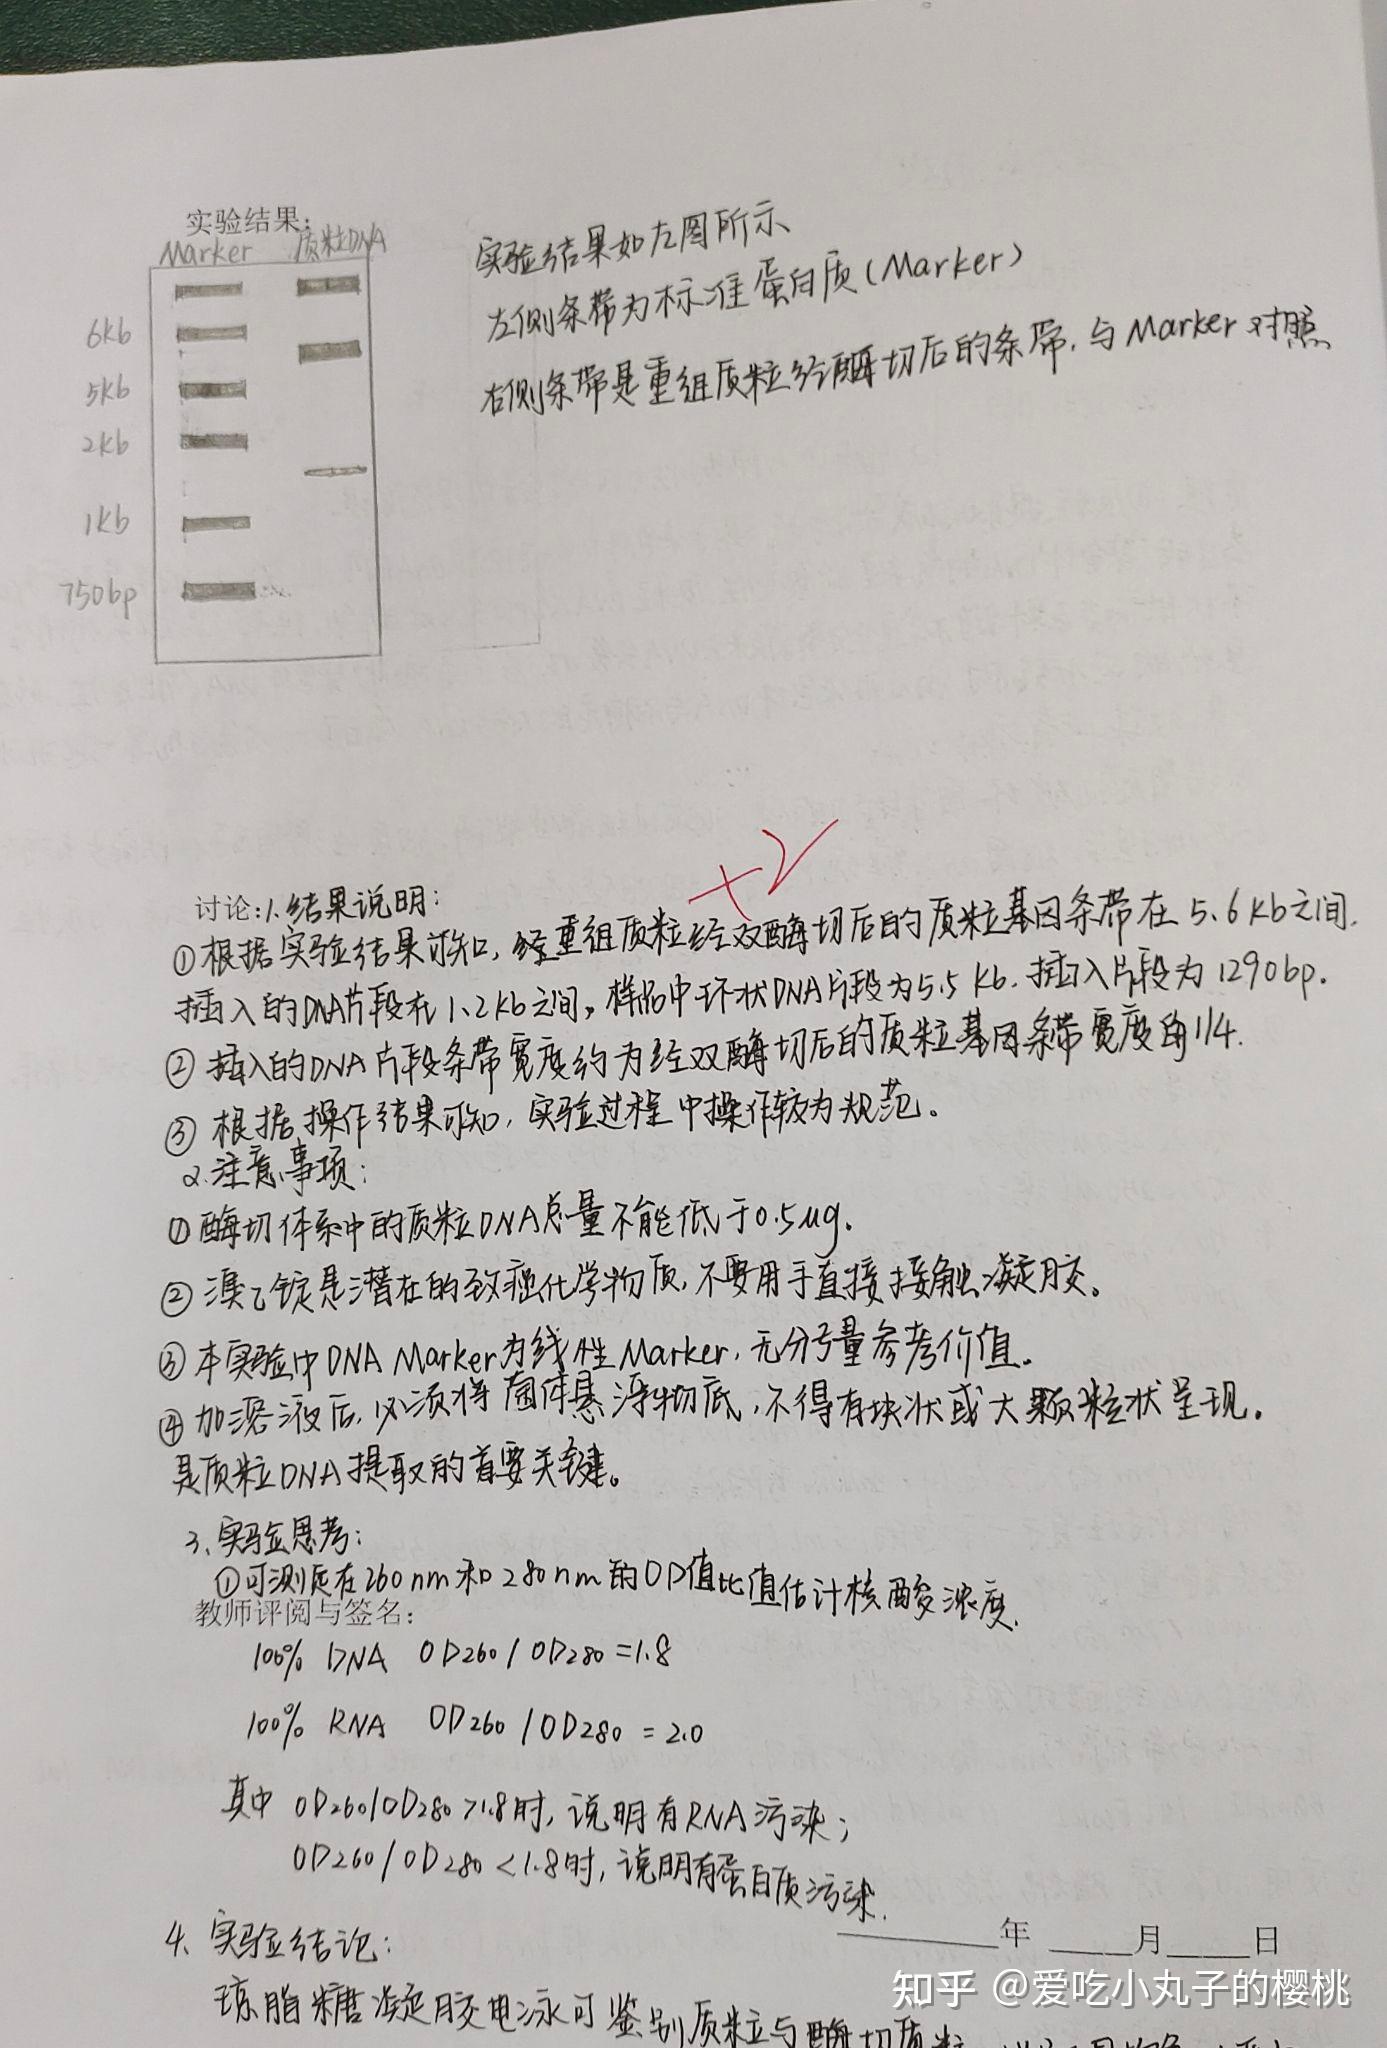 实验结果:
Marker 质粒DNA
6kb
5kb
2kb
1kb
750bp
实验结果如左图所示
左侧条带为标准蛋白质(Marker)
右侧条带是重组质粒经酶切后的条带,与Marker对照
+2
讨论:1.结果说明:
①根据实验结果可知,重组质粒经双酶切后的质粒基因条带在5.6kb之间.
插入的DNA片段在1.2kb之间。样品中环状DNA片段为5.5kb.插入片段为1290bp.
②插入的DNA片段条带宽度约为经双酶切后的质粒基因条带宽度的1/4.
③根据操作结果可知,实验过程中操作较为规范。
2.注意事项:
①酶切体系中的质粒DNA总量不能低于0.5ug。
②溴乙锭是潜在的致癌化学物质,不要用手直接接触凝胶。
③本实验中DNA Marker为线性Marker,无分子量参考价值。
④加溶液后,必须将菌体悬浮彻底,不得有块状或大颗粒状呈现。
是质粒DNA提取的首要关键。
3、实验思考:
①可测定在260nm和280nm的OD值比值估计核酸浓度.
教师评阅与签名:
100% DNA OD260/OD280=1.8
100% RNA OD260/OD280=2.0
其中 OD260/OD280>1.8时,说明有RNA污染;
OD260/OD280<1.8时,说明有蛋白质污染.
年 月 日
4、实验结论:
琼脂糖凝胶电泳可鉴别质粒与酶切质粒
知乎 @爱吃小丸子的樱桃